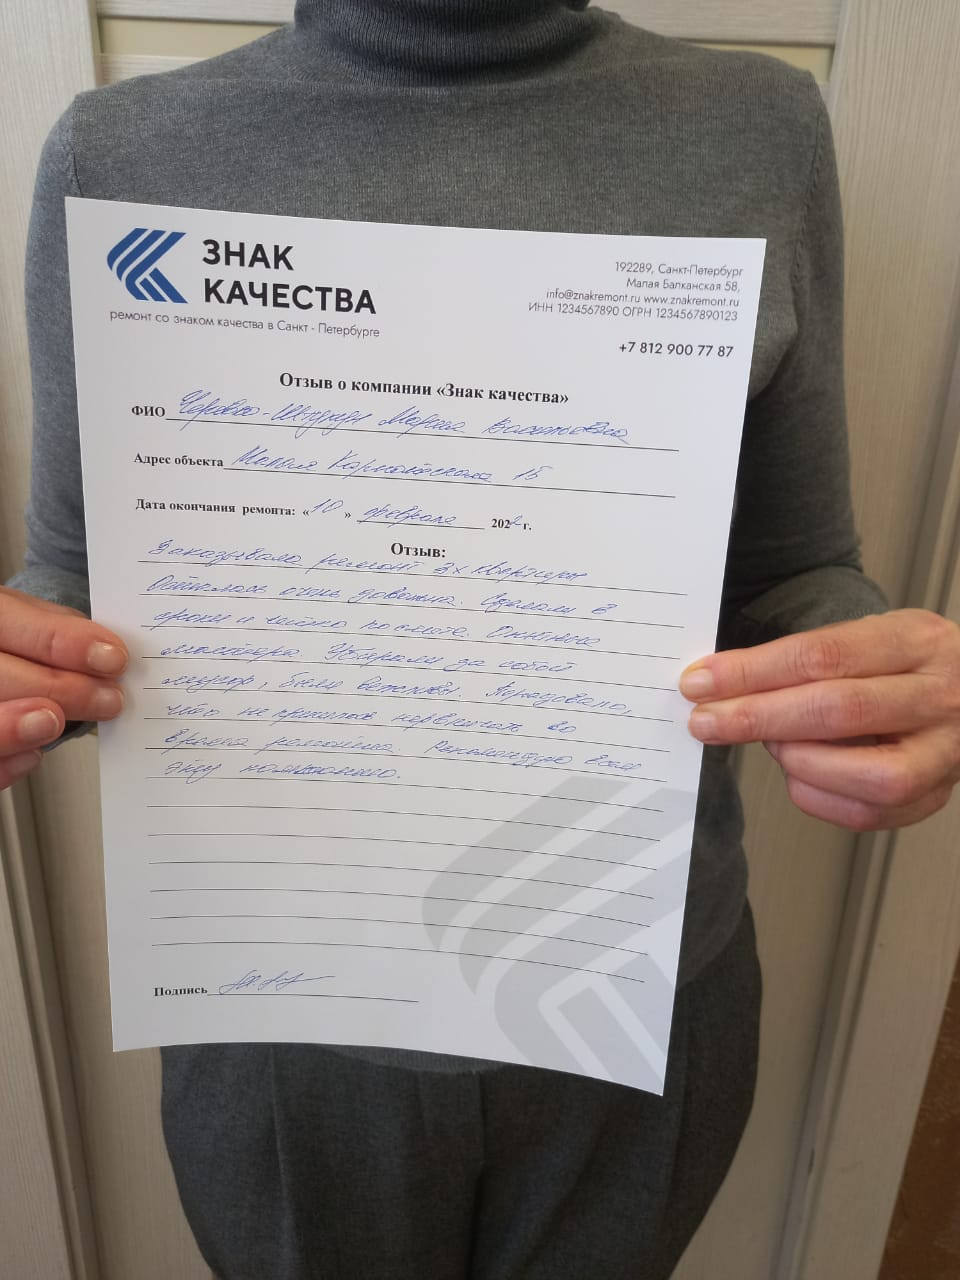 ЗНАК
КАЧЕСТВА
ремонт со знаком качества в Санкт - Петербурге
192289, Санкт-Петербург
Малая Балканская 58,
info@znakremont.ru www.znakremont.ru
ИНН 1234567890 ОГРН 1234567890123
+7 812 900 77 87
Отзыв о компании «Знак качества»
ФИО Марина
Адрес объекта Малая 15
Дата окончания ремонта: «10» февраля 2022 г.
Отзыв:
Заказывала ремонт 3х квартиры
Осталась очень довольна. Сделали в
сроки и четко по смете. Опытные
мастера. Убирали за собой
мусор, были вежливы. Порадовало,
что не пришлось нервничать во
время ремонта. Рекомендую всем
эту компанию.
Подпись